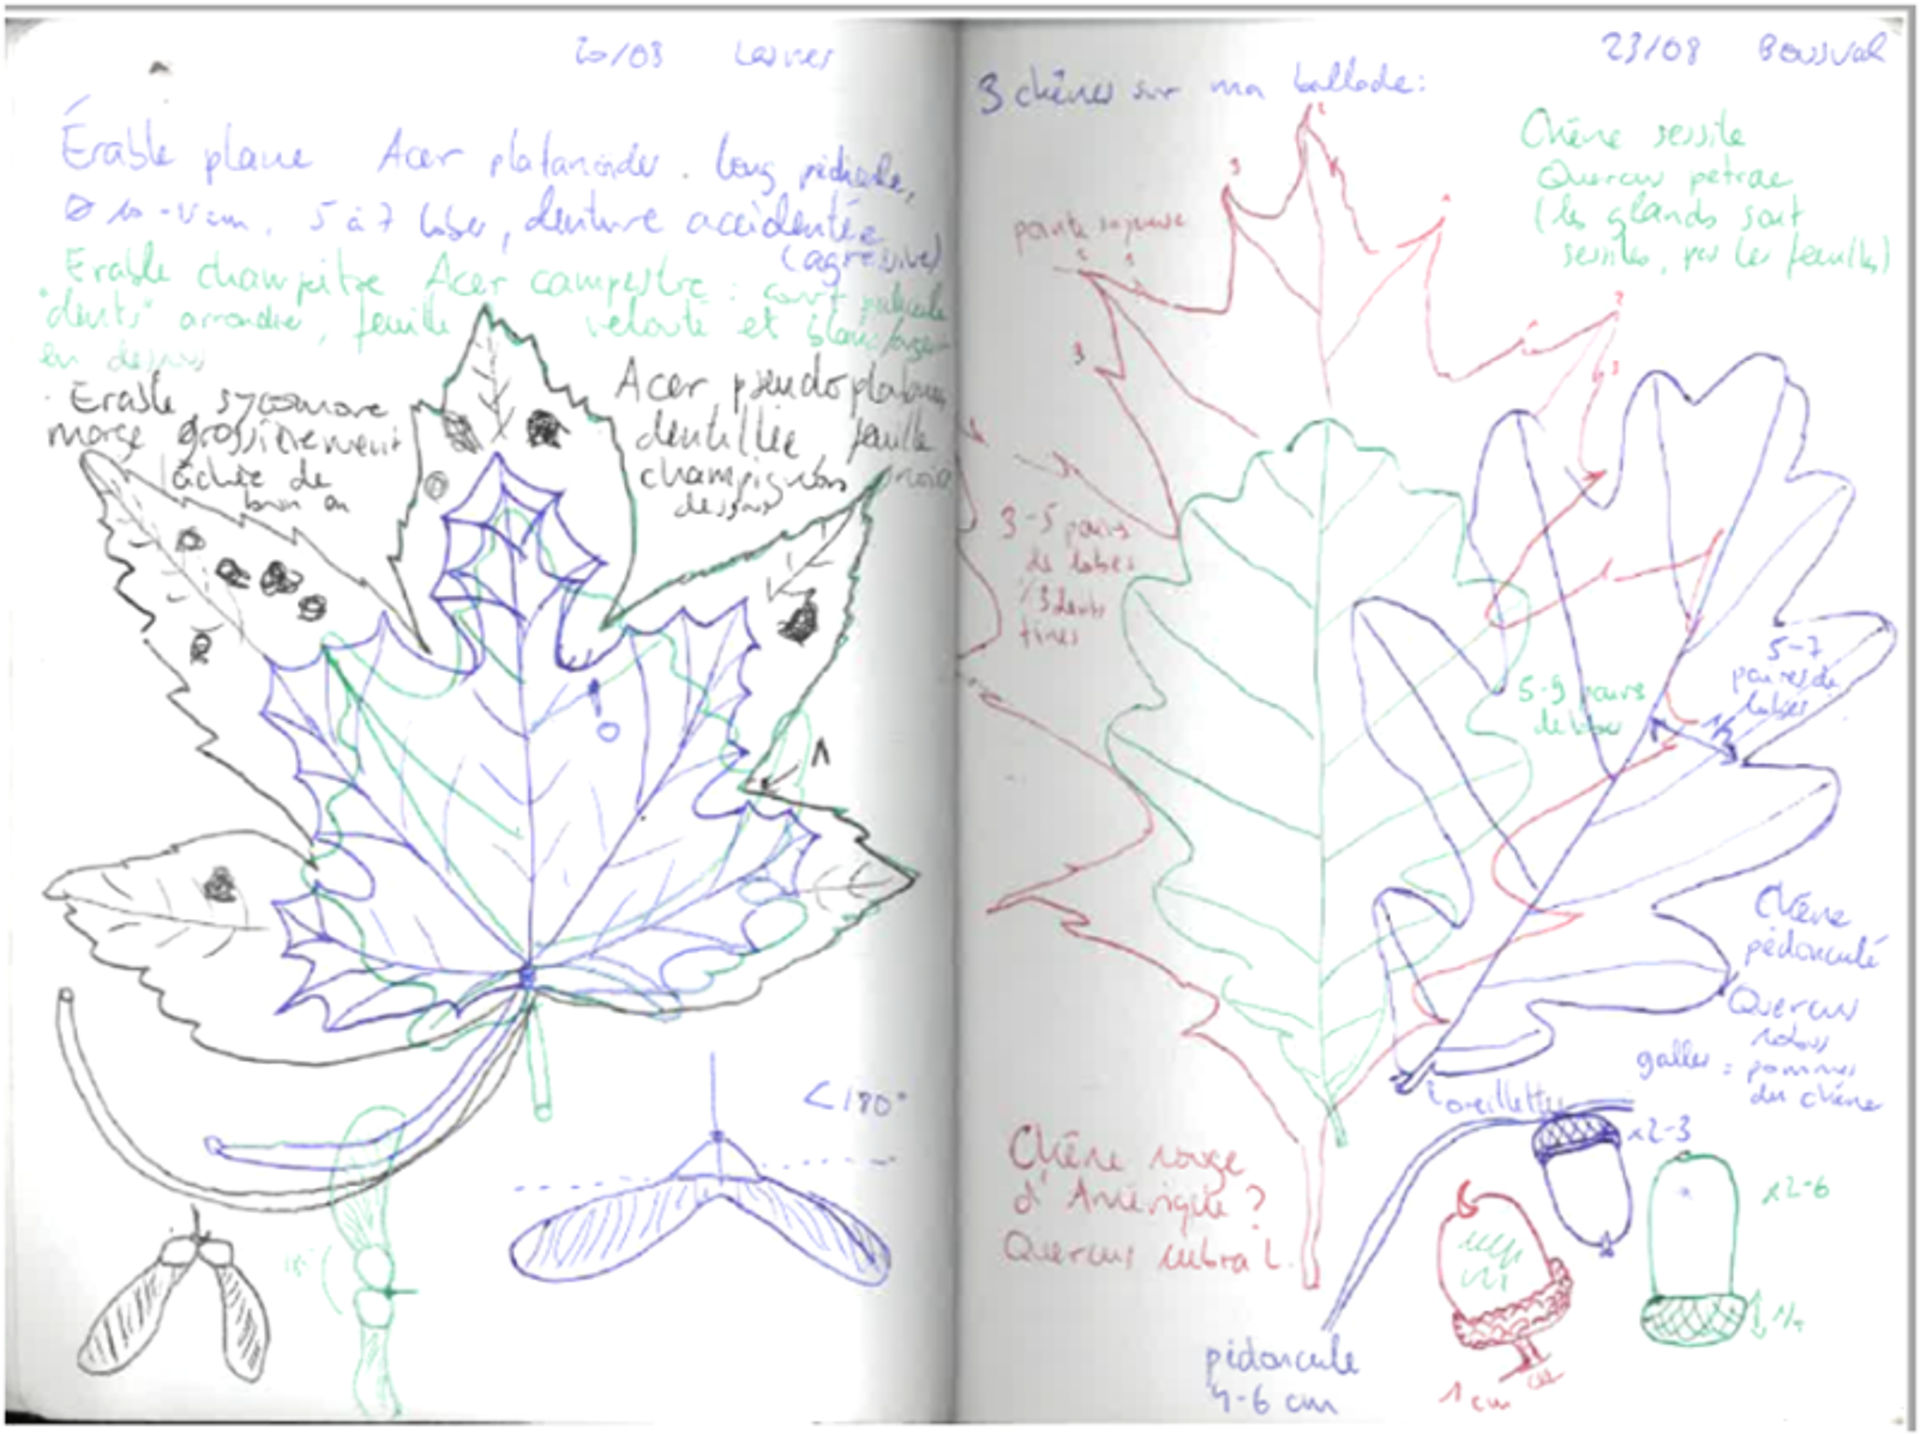 20/08 Lasnes
Érable plane Acer platanoides. long pédicule,
5 à 7 lobes, denture accidentée
(agressive)
Erable champêtre Acer campestre : court pédicule
"dents" arrondies, feuille velouté et
en dessous
Erable sycomore
grossièrement
lâchée de
Acer pseudoplatanus
dentillée feuille
champignons
dessous
<180°
23/08 Bousval
3 chênes sur ma ballade:
Chêne sessile
Quercus petrae
(les glands sont
sessiles, pas les feuilles)
pointe soyeuse
3-5 paires
de lobes
3 dents
fines
5-9 paires
de lobes
5-7
paires de
lobes
1/2
Chêne
pédonculé
Quercus
robus
galles = pommes
du chêne
oreillettes
x2-3
x2-6
Chêne rouge
d'Amérique ?
Quercus rubra L.
pédoncule
4-6 cm
1 cm